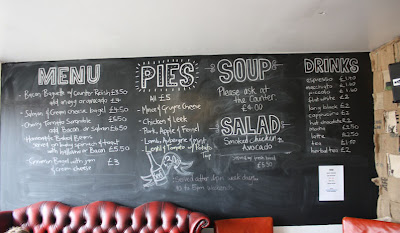 MENU
- Bacon Baguette w/ Counter Relish £3.50
add an egg or avocado £4
- Salmon & Cream cheese bagel £4.50
- Cherry Tomato Scramble £5.50
add bacon or salmon £6.50
- Homemade Baked Beans
served on baby spinach & toast
with Halloumi or Bacon £5.50
- Cinnamon Bagel with jam £3
& cream cheese
PIES
All £5
- Minced & Gruyere Cheese
- Chicken & Leek
- Pork, Apple & Fennel
- Lamb, Aubergine & mint
Served after 12pm week days
to 5pm weekends
SOUP
Please ask at
the Counter
£4.00
SALAD
Smoked Chicken &
Avocado
£6.50
DRINKS
espresso
macchiato
piccolo
flat white £2
long black £2
cappuccino
hot chocolate
mocha
latte
tea
herbal tea £2